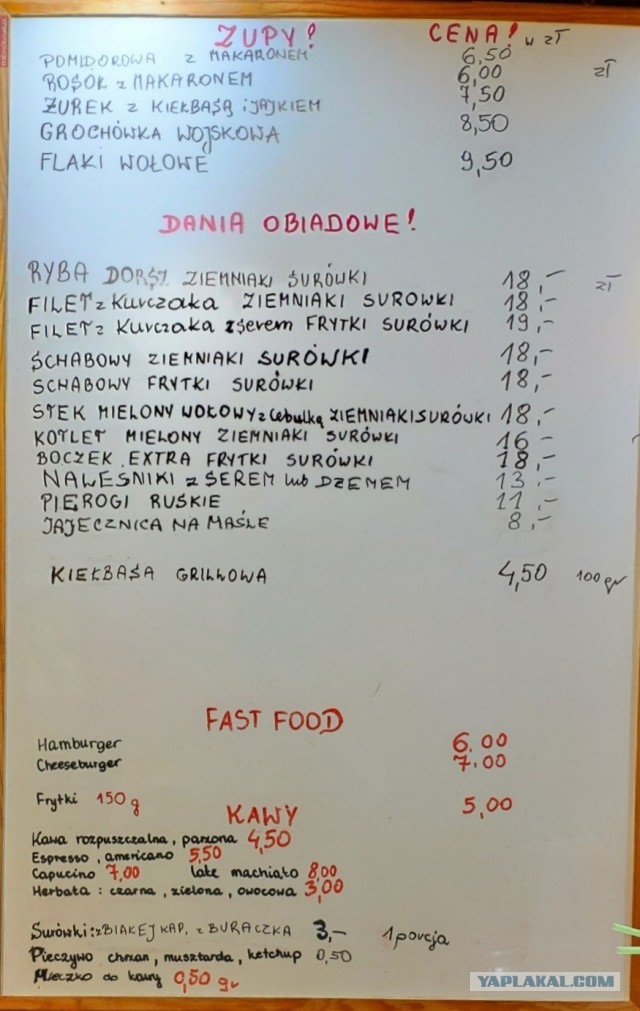 ZUPY! CENA! w zł
POMIDOROWA z MAKARONEM 6,50
ROSÓŁ z MAKARONEM 6,00 zł
ŻUREK z KIEŁBASĄ i JAJKIEM 7,50
GROCHÓWKA WOJSKOWA 8,50
FLAKI WOŁOWE 9,50
DANIA OBIADOWE!
RYBA DORSZ ZIEMNIAKI SURÓWKI 18,- zł
FILET z Kurczaka ZIEMNIAKI SUROWKI 18,-
FILET z Kurczaka z serem FRYTKI SURÓWKI 19,-
SCHABOWY ZIEMNIAKI SURÓWKI 18,-
SCHABOWY FRYTKI SURÓWKI 18,-
STEK MIELONY WOŁOWY z Cebulką ZIEMNIAKI SURÓWKI 18,-
KOTLET MIELONY ZIEMNIAKI SURÓWKI 16 -
BOCZEK EXTRA FRYTKI SURÓWKI 18,-
NALEŚNIKI z SEREM lub DŻEMEM 13,-
PIEROGI RUSKIE 11,-
JAJECZNICA NA MAŚLE 8,-
KIEŁBASA GRILLOWA 4,50 100 gr
FAST FOOD
Hamburger 6.00
Cheeseburger 7.00
Frytki 150 g 5,00
KAWY
Kawa rozpuszczalna, parzona 4,50
Espresso, americano 5,50
Capucino 7,00 late machiato 8,00
Herbata : czarna, zielona, owocowa 3,00
Surówki: z BIAŁEJ KAP, z BURACZKA 3,- 1 porcja
Pieczywo chrzan, musztarda, ketchup 0,50
Mleczko do kawy 0,50 gr
YAPLAKAL.COM